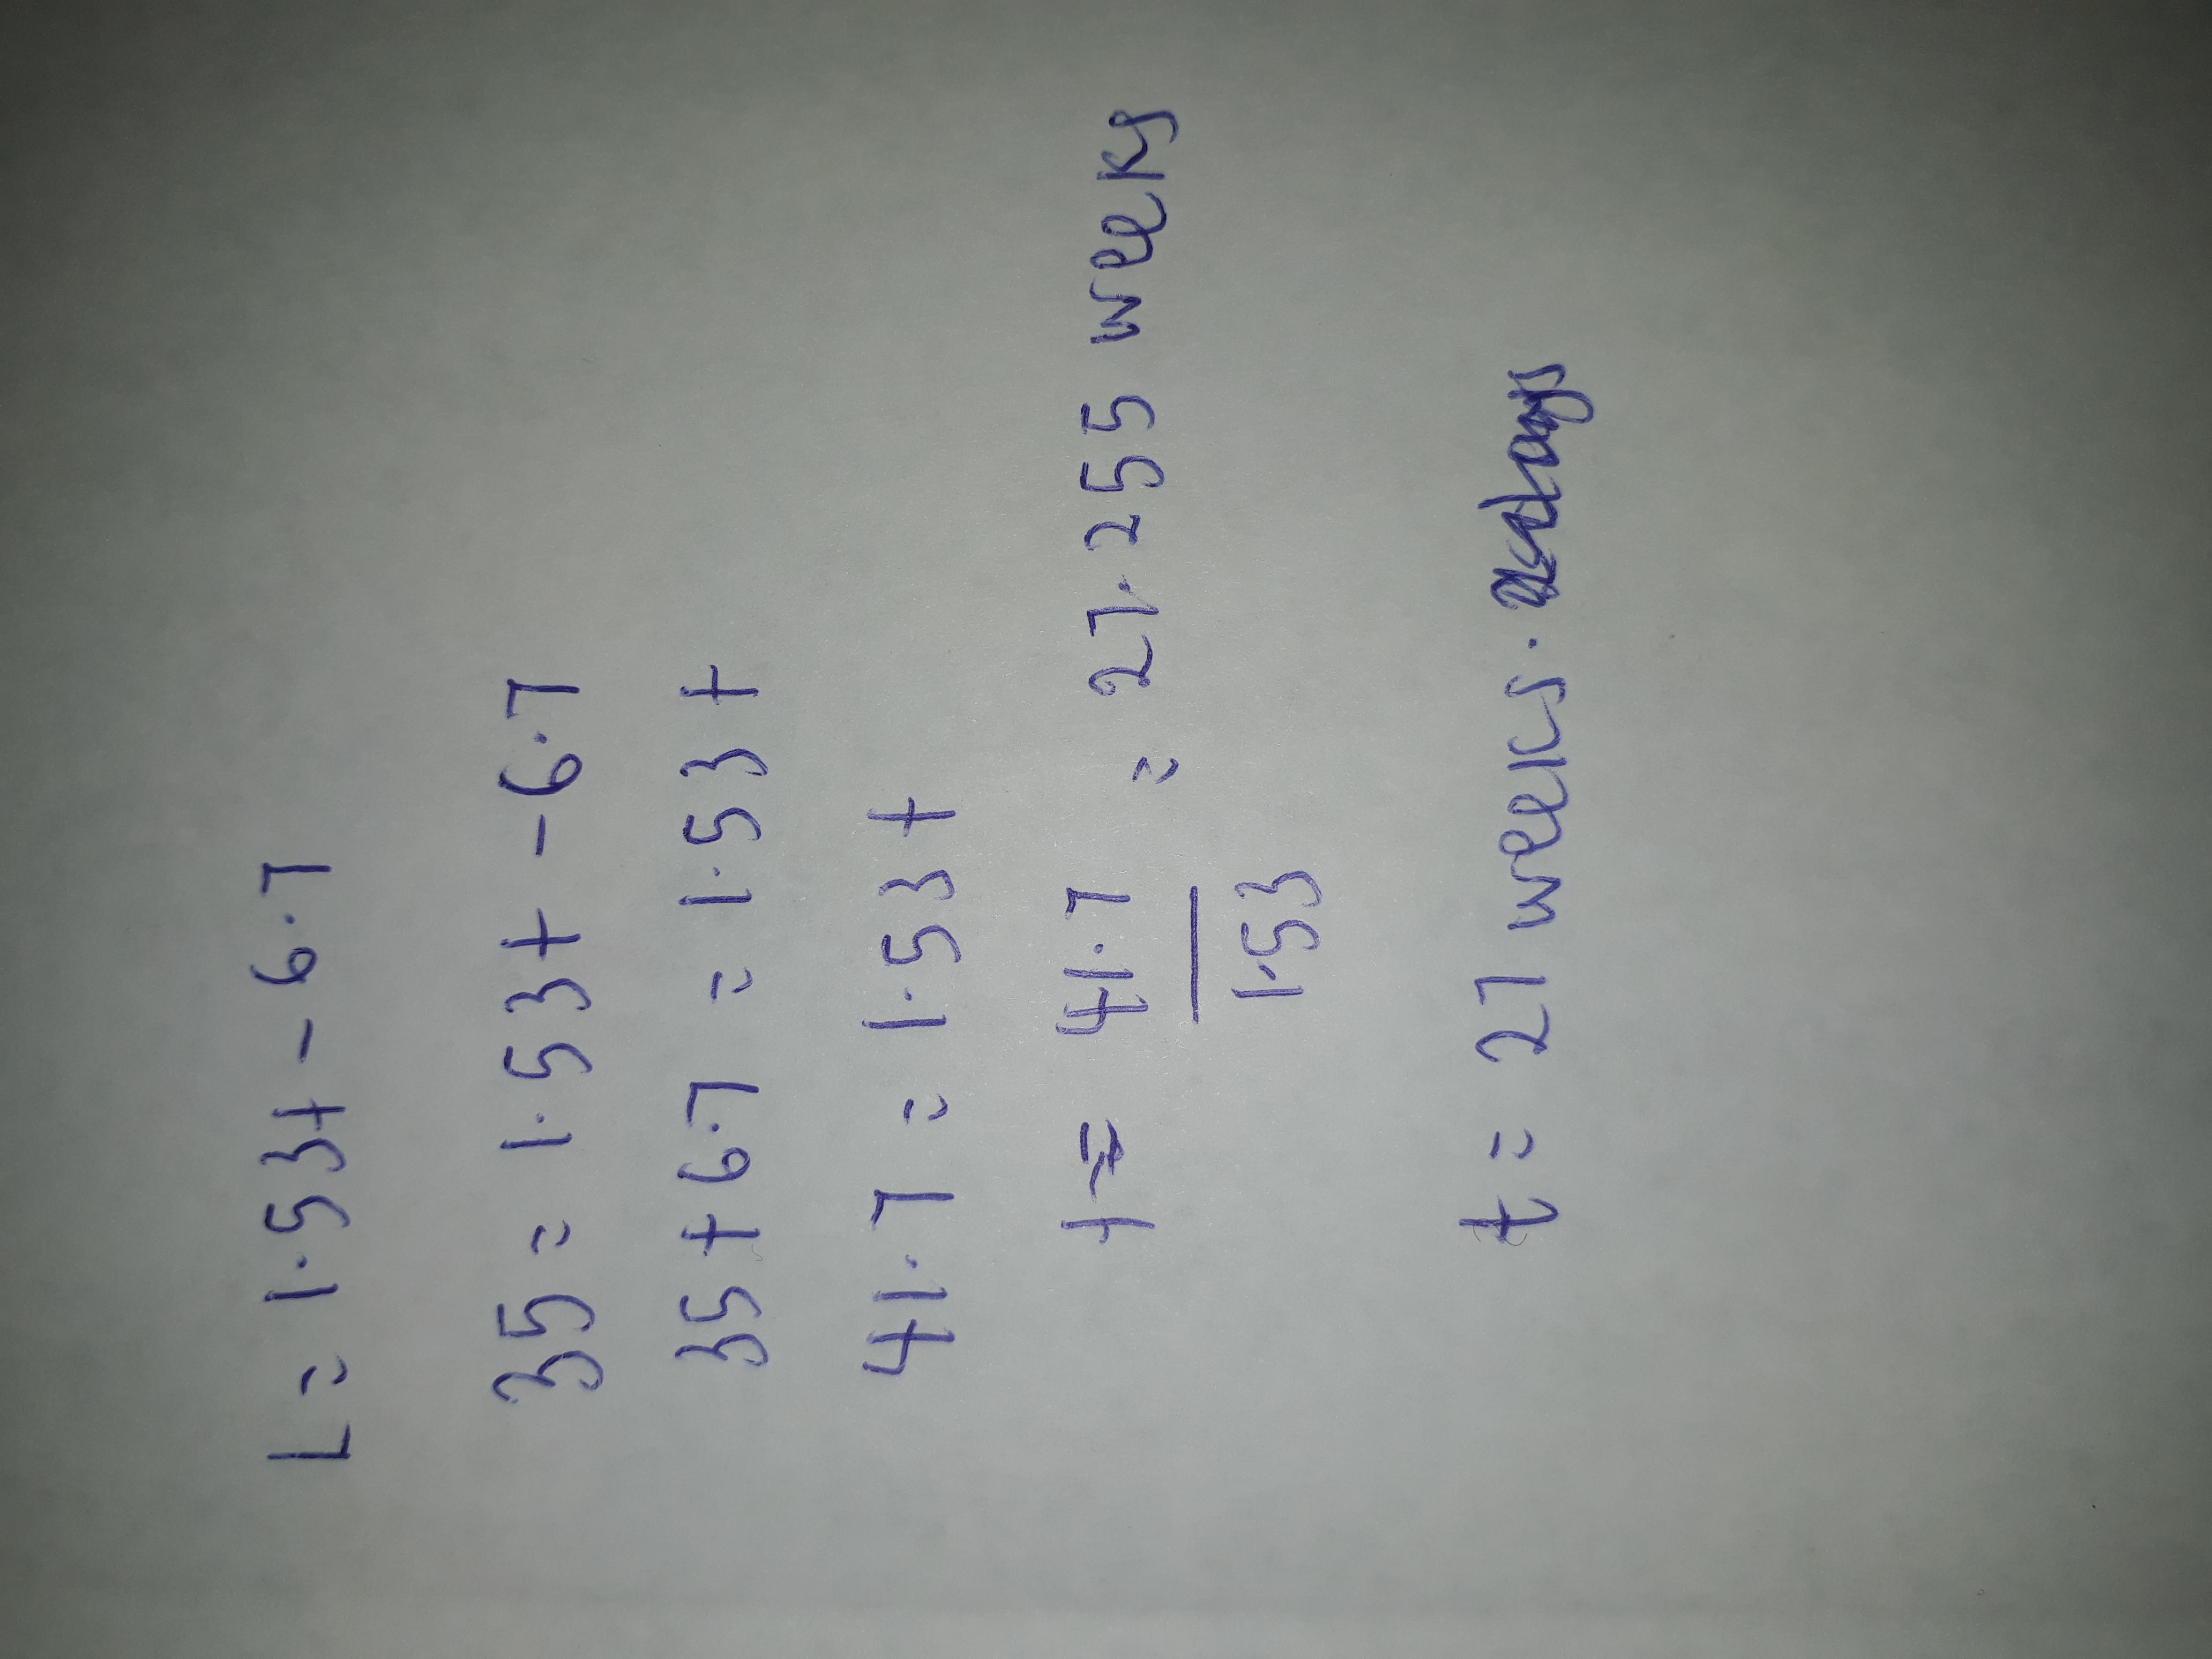 L = 1.53t - 6.7
35 = 1.53t - 6.7
35 + 6.7 = 1.53t
41.7 = 1.53t
t = 41.7 / 1.53 = 27.255 weeks
t = 27 weeks.